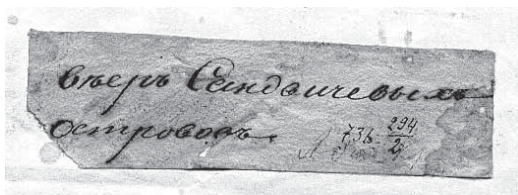 вѣеръ Сандвичевыхъ
острововъ.
736 294/2